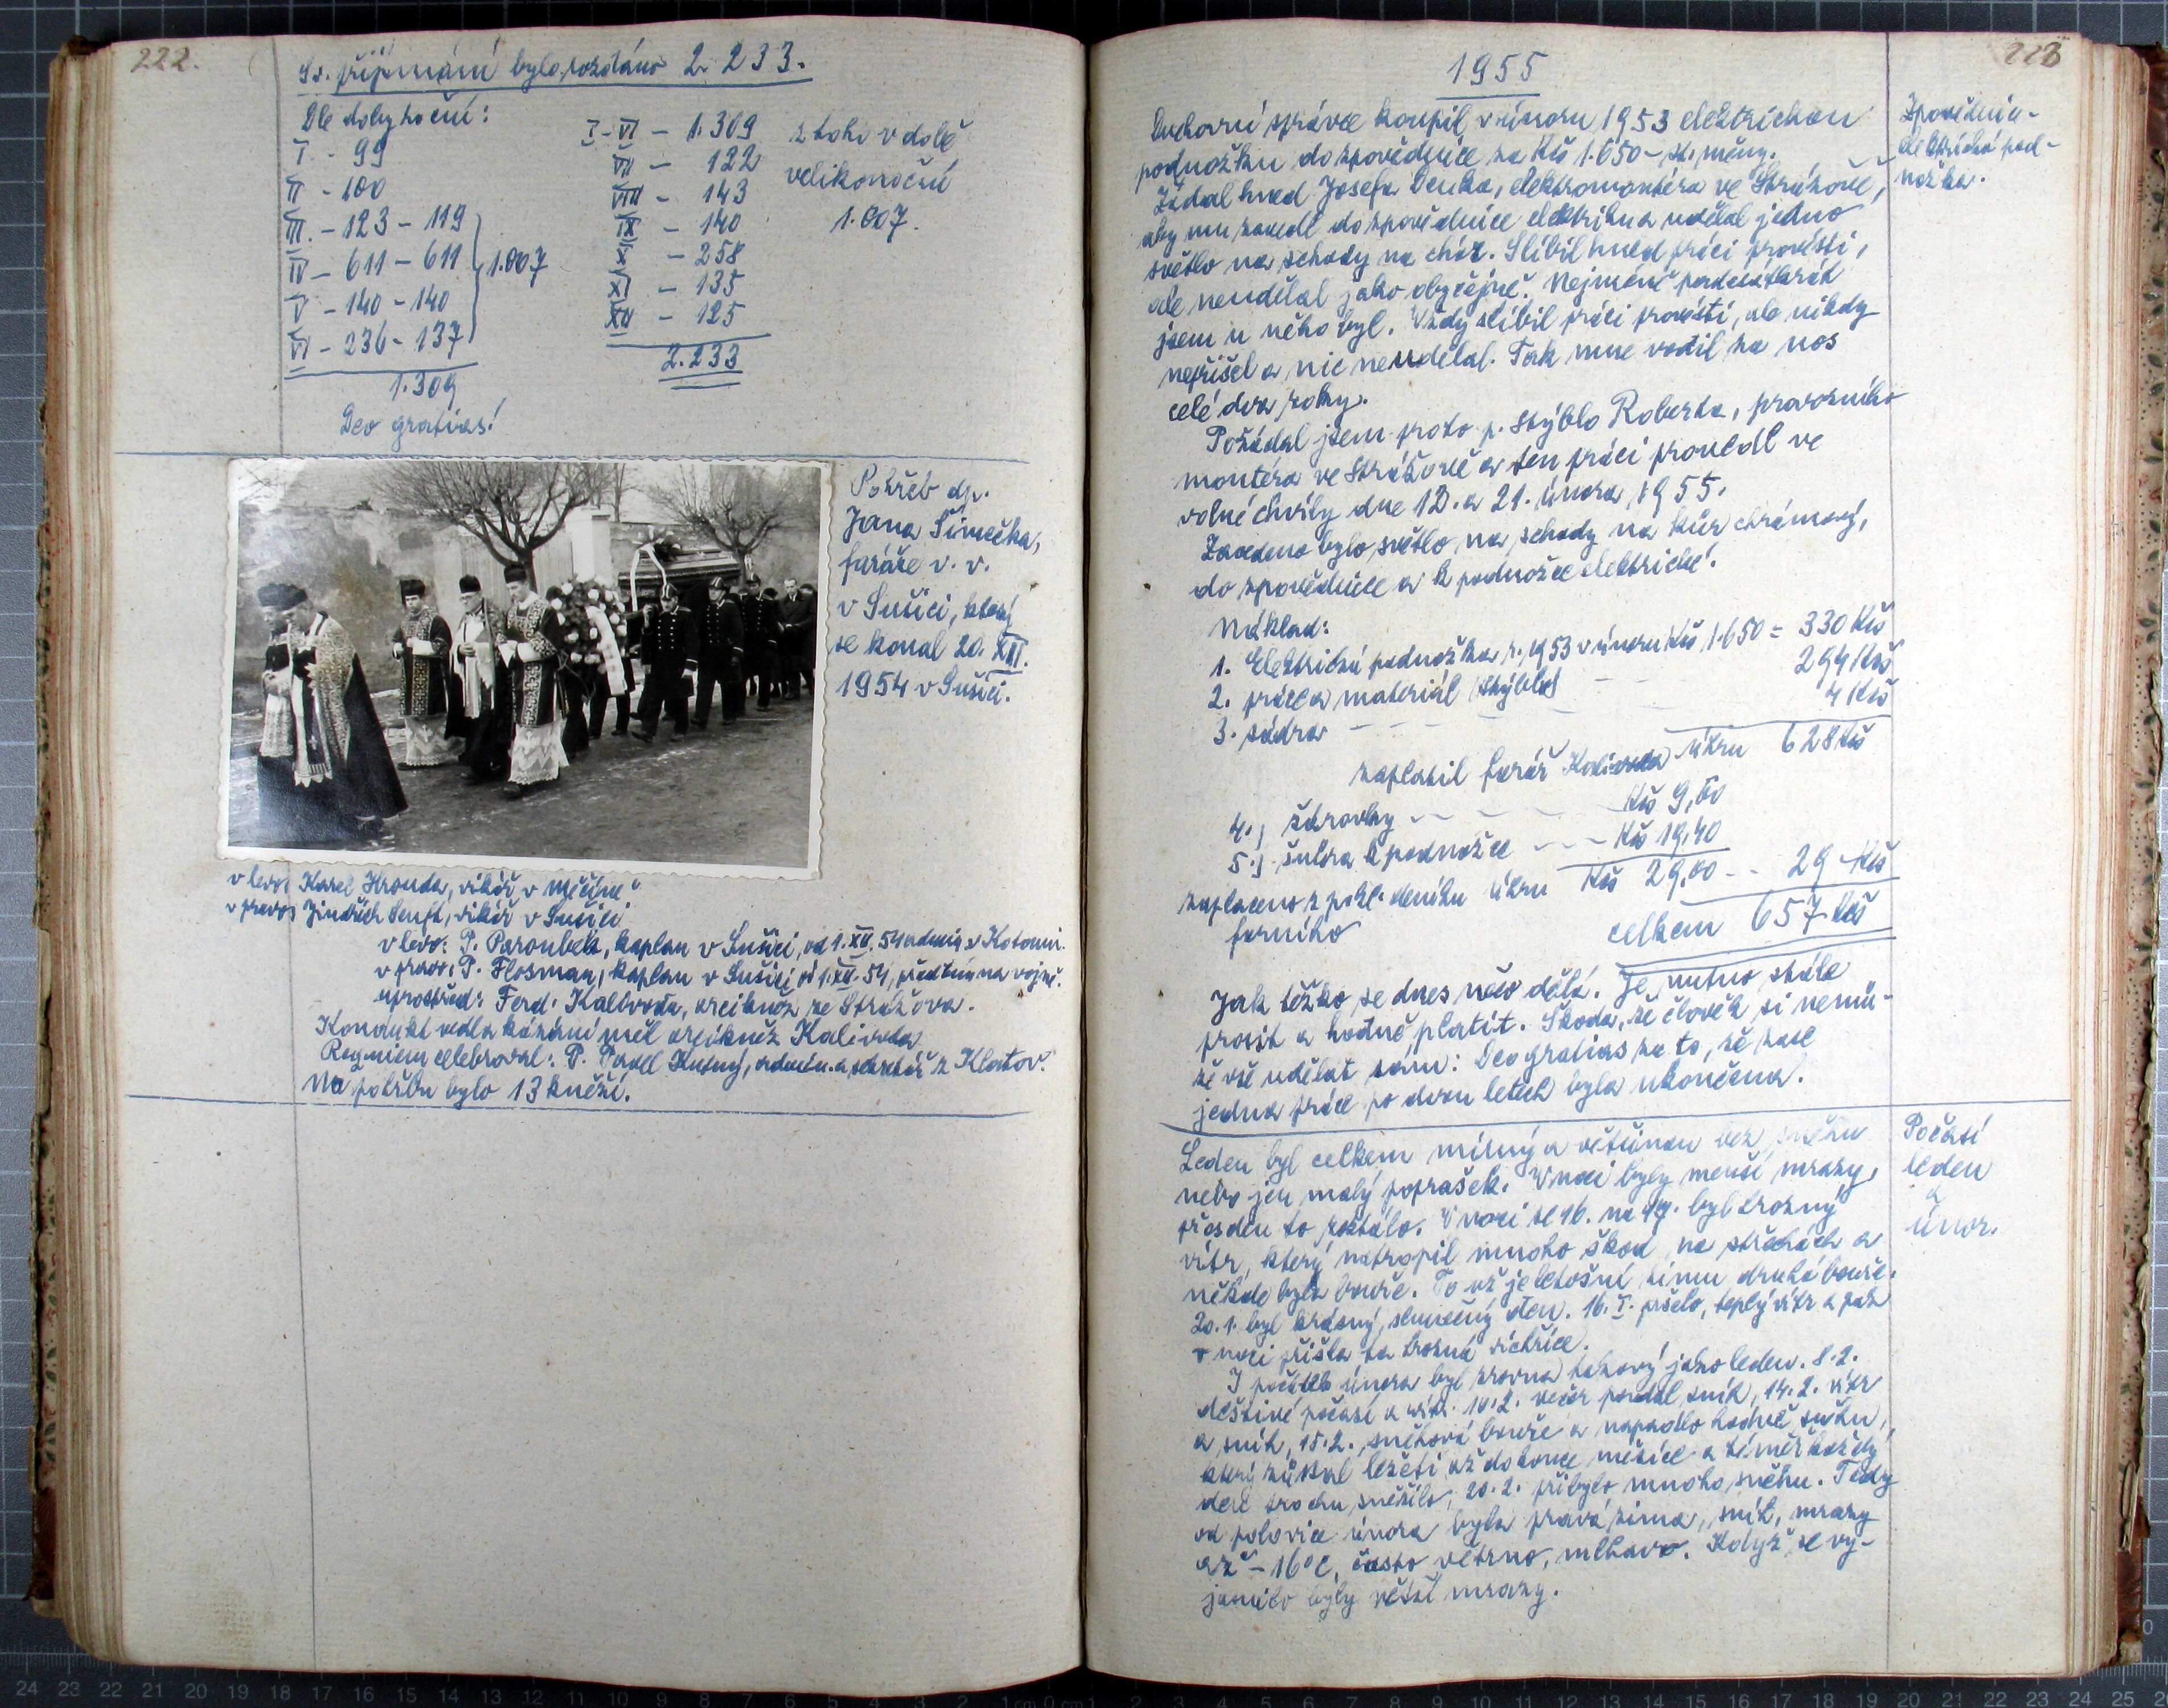 222.
Sv. přijímání bylo rozdáno 2.233.
Dle doby roční:
I - 99
II - 100
III. - 123 - 119
IV - 611 - 611
V - 140 - 140
VI - 236 - 137
1.007
1.309
Deo gratias!
I-VI - 1.309
VII - 122
VIII - 143
IX - 140
X - 258
XI - 135
XII - 125
2.233
z toho v době
velikonoční
1.007.
Pohřeb dp.
Jana Šimečka,
faráře v. v.
v Sušici, který
se konal 20. XII.
1954 v Sušici.
v levo: Karel Hrouda, vikář v Měčíně
v pravo: Jindřich Senft, vikář v Sušici
v levo: P. Paroubek, kaplan v Sušici, od 1. XII. 54 admin. v
v pravo: P. Flosman, kaplan v Sušici od 1. XII. 54, předtím na vojně.
uprostřed: Ferd. Kalivoda, arcikněz ze Strážova.
Kondukt vedl a kázání měl arcikněz Kalivoda
Requiem celebroval: P. Pavel admin. a sekretář z Klatov.
Na pohřbu bylo 13 kněží.
223
1955
Duchovní správce koupil v únoru 1953 elektrickou
podnožku do zpovědnice za Kčs 1.650 - st. měny.
Žádal hned Josefa Denka, elektromontéra ve Strážově,
aby mu zavedl do zpovědnice elektriku a udělal jedno
světlo na schody na chór. Slíbil hned práci provésti,
ale neudělal jako obyčejně. Nejméně padesátkrát
jsem u něho byl. Vždy slíbil práci provésti, ale nikdy
nepřišel a nic neudělal. Tak mne vodil za nos
celé dva roky.
Požádal jsem proto p. Stýblo Roberta, provozního
montéra ve Strážově a ten práci provedl ve
volné chvíly dne 12. a 21. února 1955.
Zavedeno bylo světlo na schody na kůr chrámový,
do zpovědnice a k podnožce elektrické.
Náklad:
1. Elektrická podnožka r. 1953 v únoru Kčs 1.650 = 330 Kčs
2. práce a materiál (Stýblo) - - 294 Kčs
3. sádra - - - - 4 Kčs
zaplatil farář Kalivoda úhrn 628 Kčs
4.) žárovky - - - - Kčs 9,60
5.) šňůra k podnožce - - - Kčs 19,40
zaplaceno z pokl. deníku úhrn Kčs 29,00 - - 29 Kčs
farního
celkem 657 Kčs
Jak těžko se dnes něco dělá. Je nutno stále
prosit a hodně platit. Škoda, že člověk si nemů-
že vše udělat sám. Deo gratias za to, že zase
jedna práce po dvou letech byla ukončena.
Leden byl celkem mírný a většinou bez sněhu
nebo jen malý poprašek. V noci byly menší mrazy,
přes den to roztálo. V noci se 16. na 17. byl hrozný
vítr, který natropil mnoho škod na střechách a
někde byla bouře. To už je letošní zimu druhá bouře.
20.1. byl krásný, slunečný den. 16. I. pršelo, teplý vítr a pak
v noci přišla ta hrozná vichřice.
I počátek února byl zrovna takový jako leden. 8.2.
deštivé počasí a vítr. 10.2. večer padal sníh, 14.2. vítr
a sníh, 15.2. sněhová bouře a napadlo hodně sněhu,
který zůstal ležeti až do konce měsíce a téměř každý
den trochu sněžilo, 20.2. přibylo mnoho sněhu. Tedy
od polovice února byla pravá zima, sníh, mrazy
až - 16°C, často větrno, mlhavo. Když se vy-
jasnilo byly větší mrazy.
Zpovědnice -
elektrická pod-
nožka.
Počasí
leden
a
únor.